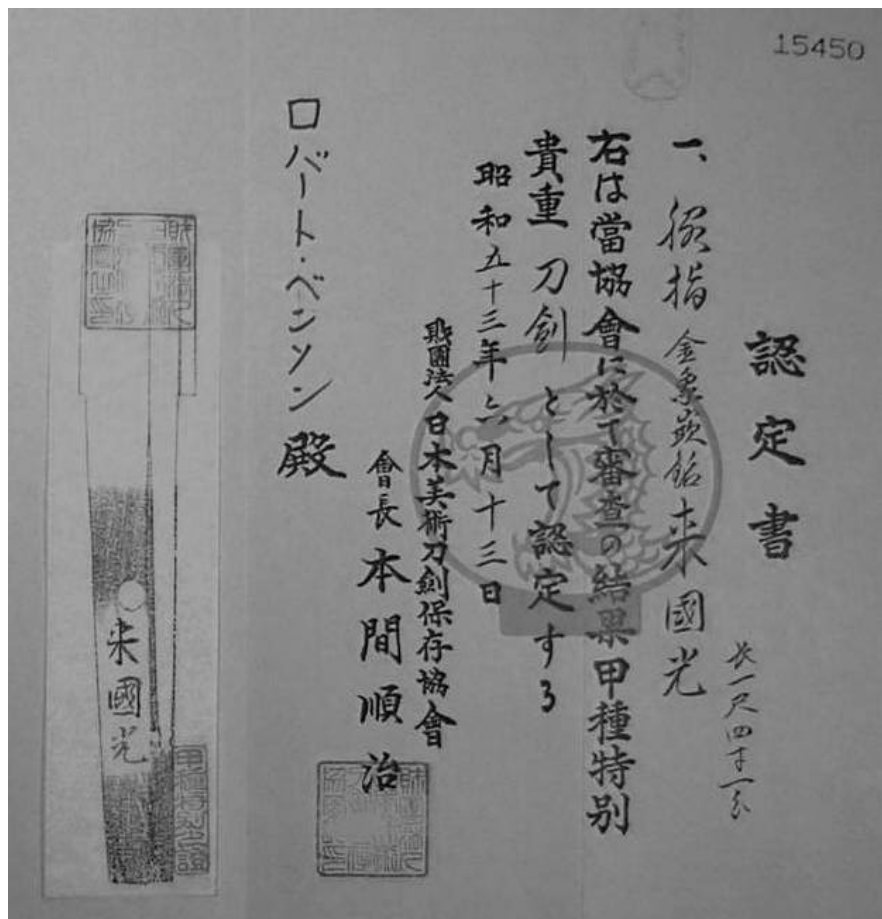 15450
認定書
一、脇指 金象嵌銘 来國光
長一尺四寸一分
右は當協會に於て審査の結果甲種特別
貴重 刀剣 として認定する
昭和五十三年六月十三日
財團法人日本美術刀剣保存協會
會長 本間順治
ロバート・ベンソン 殿
来國光